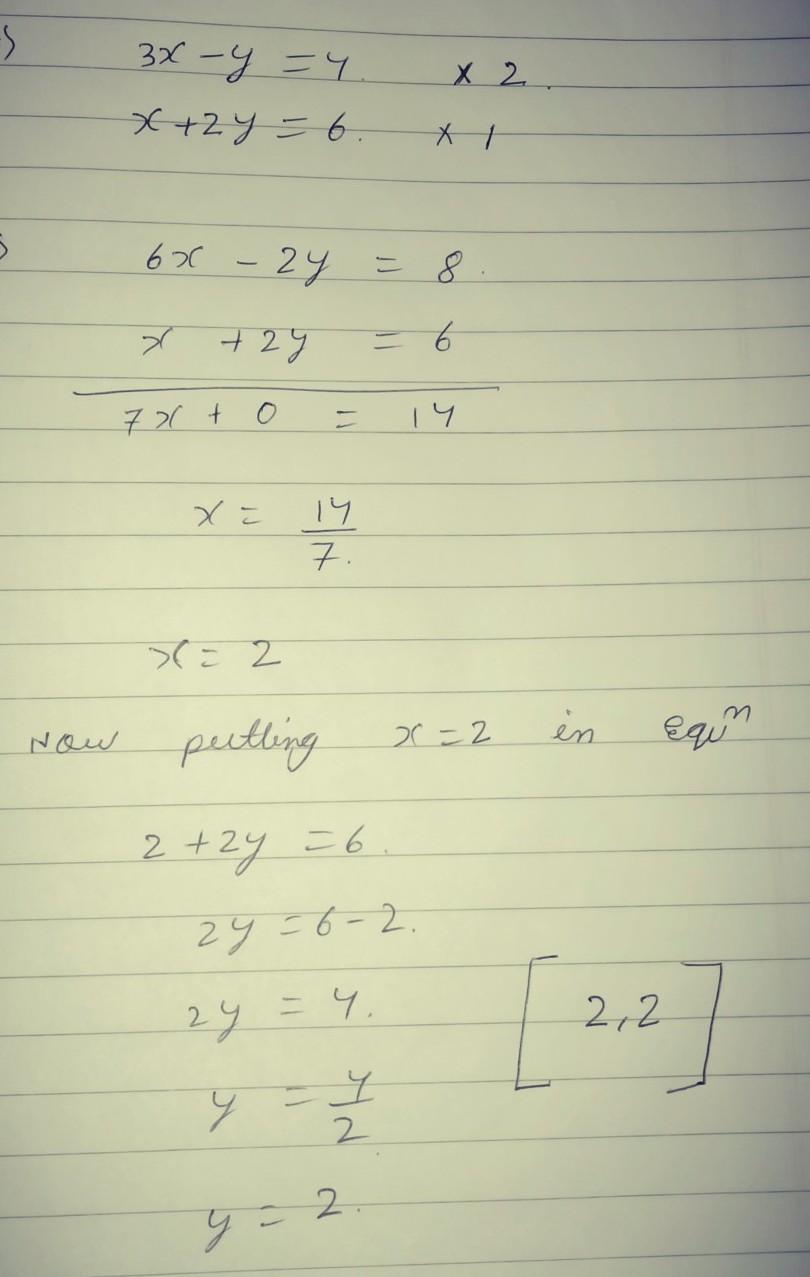 3x - y = 4. × 2.
x + 2y = 6. × 1
6x - 2y = 8.
x + 2y = 6
7x + 0 = 14
x = 14/7.
x = 2
Now putting x = 2 in Equⁿ
2 + 2y = 6.
2y = 6 - 2.
2y = 4.
[2,2]
y = 4/2
y = 2.